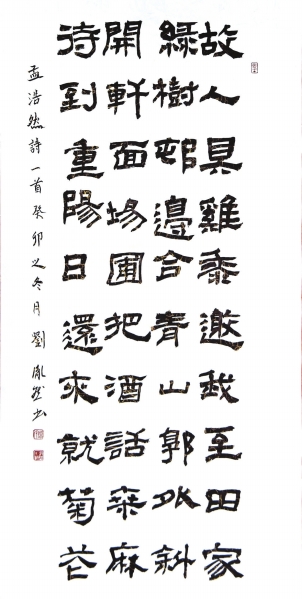 故人具雞黍邀我至田家
緑樹邨邊合青山郭外斜
開軒面場圃把酒話桑麻
待到重陽日還來就菊花
孟浩然詩一首癸卯之冬月劉胤书